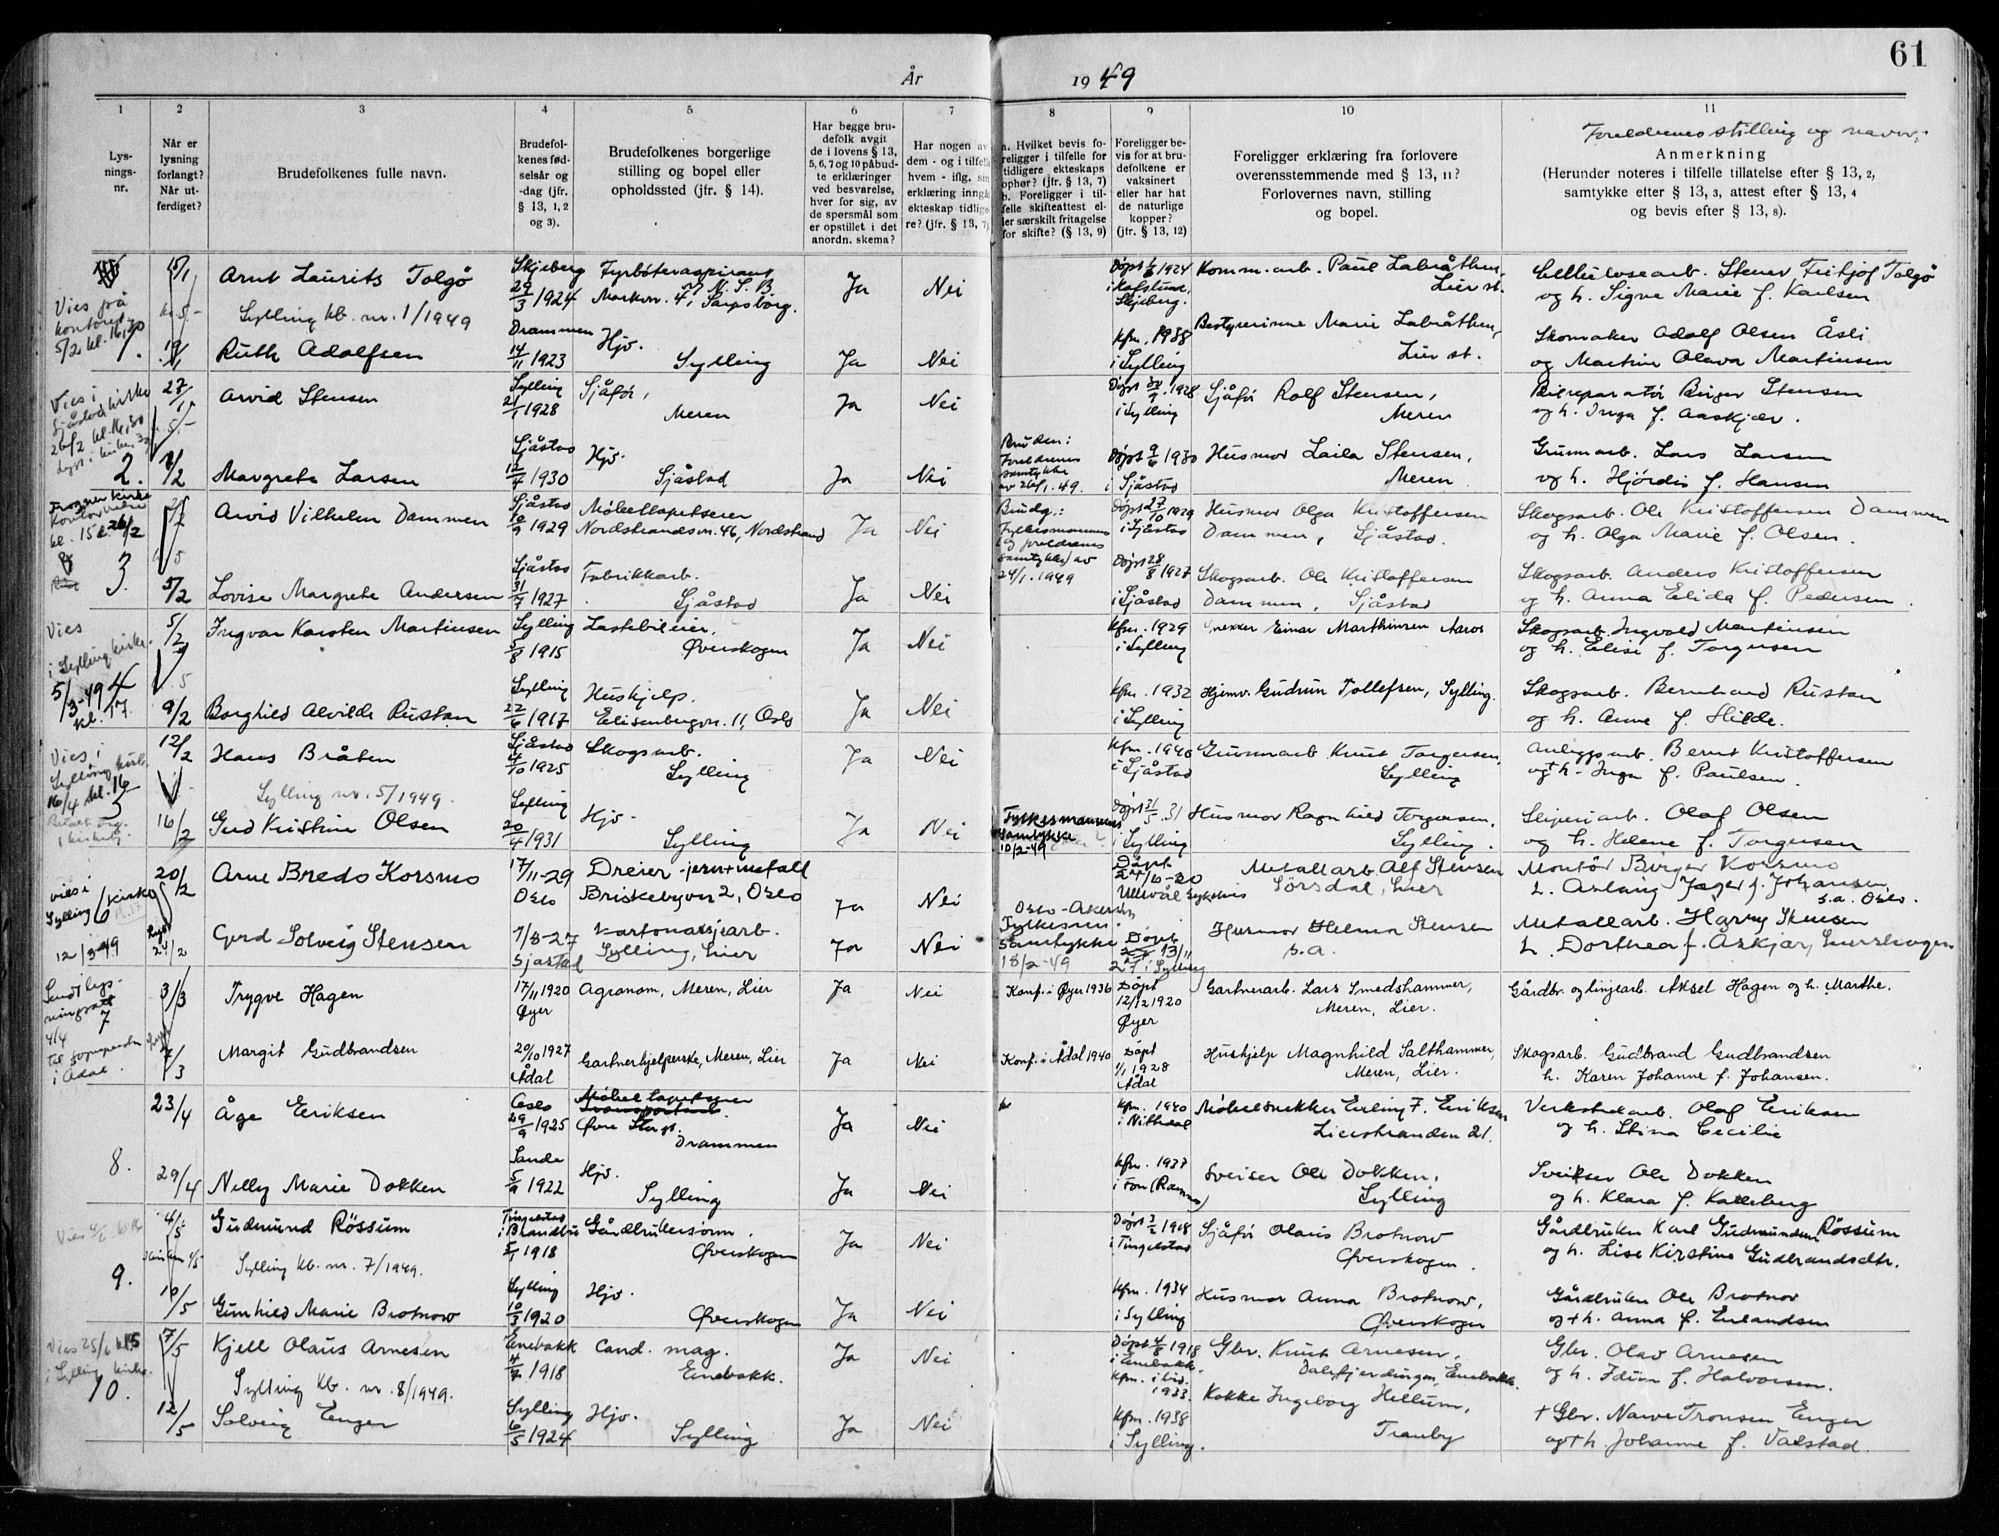 61
År 1949
1 2 3 4 5 6 7 8 9 10 11
Foreldrenes stilling og navn.
Lys-
nings-
nr.
Når er
lysning
forlangt?
Når ut-
ferdiget?
Brudefolkenes fulle navn.
Brudefol-
kenes fød-
selsår og
-dag (jfr.
§ 13, 1, 2
og 3).
Brudefolkenes borgerlige
stilling og bopel eller
opholdssted (jfr. § 14).
Har begge bru-
defolk avgit
de i lovens § 13,
5, 6, 7 og 10 påbud-
te erklæringer
ved besvarelse,
hver for sig, av
de spørsmål som
er opstillet i det
anordn. skema?
Har nogen av
dem - og i tilfelle
hvem - iflg. sin
erklæring inngått
ekteskap tidlige-
re? (jfr. § 13, 7)
a. Hvilket bevis fo-
religger i tilfelle for
tidligere ekteskaps
ophør? (jfr. § 13, 7)
b. Foreligger i til-
felle skifteattest el-
ler særskilt fritagelse
for skifte? (§ 13, 9)
Foreligger be-
vis for at bru-
defolkene er
vaksinert
eller har hat
de naturlige
kopper?
(jfr. § 13, 12)
Foreligger erklæring fra forlovere
overensstemmende med § 13, 11?
Forlovernes navn, stilling
og bopel.
Anmerkning
(Herunder noteres i tilfelle tillatelse efter § 13, 2,
samtykke efter § 13, 3, attest efter § 13, 4
og bevis efter § 13, 8).
Vies på
kontoret
5/2 kl. 16,30
1.
15/1
Arnt Laurits Tolgø
Skjeberg
29/3 1924
Fyrbøteraspirant
v/ N. S. B.
Markvn. 4, Sarpsborg.
Ja
Nei
Døpt 1924
i Hafslund,
Skjeberg.
Komm. arb. Paul Labråthen,
Lier st.
Cellulosearb. Stener Fritjof Tolgø
og h. Signe Marie f. Karlsen
Sylling kb. nr. 1/1949
Ruth Adolfsen
Drammen
14/11 1923
Hjv.
Sylling
Ja
Nei
Kfm. 1938
i Sylling
Bestyrerinne Marie Labråthen,
Lier st.
Skomaker Adolf Olsen Åsli
og Martine Olava Martinsen
Vies i
Sjåstad kirke
26/2 kl. 16,30
2.
27/1
Arvid Stensen
Sylling
21/1 1928
Sjåfør,
Meren
Ja
Nei
Døpt 1928
i Sylling
Sjåfør Rolf Stensen,
Meren
Bilreparatør Birger Stensen
og h. Inga f. Aaskjær.
Margrete Larsen
Sjåstad
12/4 1930
Hjv.
Sjåstad
Ja
Nei
Bruden:
Foreldrenes
samtykke
av 26/1.49.
Døpt 9/6 1930
i Sjåstad
Husmor Laila Stensen,
Meren
Grunnarb. Lars Larsen
og h. Hjørdis f. Hansen
Frogner kirke
kl. 15 26/2
3.
Arvid Vilhelm Dammen
Sjåstad
10/9 1929
Møbeltapetserer
Nordstrandsvn. 46, Nordstrand
Ja
Nei
Brudg.:
Fylkesmannens
(og foreldrenes
samtykke) av
24/1. 1949
Døpt 27/10 1929
i Sjåstad
Husmor Olga Kristoffersen
Dammen, Sjåstad.
Skogsarb. Ole Kristoffersen Dammen
og h. Olga Marie f. Olsen.
5/2
Lovise Margrete Andersen
Sjåstad
31/7 1927
Fabrikkarb.
Sjåstad
Ja
Nei
Døpt 28/8 1927
i Sjåstad
Skogsarb. Ole Kristoffersen
Dammen, Sjåstad
Skogsarb. Anders Kristoffersen
og h. Anna Elida f. Pedersen.
Vies
i Sylling kirke.
5/3-49
kl. 17.
4
5/2
Ingvar Karsten Martinsen
Sylling
5/8 1915
Lastebileier,
Øverskogen
Ja
Nei
Kfm. 1929
i Sylling
Snekker Einar Marthinsen Aaros
Skogsarb. Ingvald Martinsen
og h. Elise f. Torgersen
9/2
Borghild Alvilde Rustan
Sylling
22/6 1917
Huskjelp.
Elisenbergvn. 11, Oslo
Ja
Nei
Kfm. 1932
i Sylling
Hjemv. Gudrun Tollefsen, Sylling.
Skogsarb. Bernhard Rustan
og h. Anne f. Hilde.
Vies i
Sylling kirke
16/4 kl. 16
5
12/2
Hans Bråten
Sjåstad
4/10 1925
Skogsarb.
Sylling
Ja
Nei
Kfm. 1940
i Sjåstad
Grunnarb Knut Torgersen,
Sylling
Anleggsarb. Bernt Kristoffersen
og + h. Inga f. Paulsen.
Sylling nr. 5/1949.
16/2
Gerd Kristine Olsen
Sylling
20/4 1931
Hjv.
Sylling
Ja
Nei
Fylkesmannens
samtykke
10/2-49
Døpt 31/5.31
i Sylling
Husmor Ragnhild Torgersen,
Sylling.
Sliperiarb. Olaf Olsen
og h. Helene f. Torgersen
Vies i
Sylling kirke
12/3-49
6
20/2
Arne Bredo Korsmo
17/11-29
Oslo
Dreier - jern + metall
Briskebyven 2, Oslo
Ja
Nei
Døpt
Ullevål sykehus
Metallarb Alf Stensen
Sørsdal, Lier
Montør Birger Korsmo
h. Aslaug Jæger f. Johansen,
s.a. Oslo.
24/2
Gerd Solveig Stensen
7/8-27
Sjåstad
Kartonasjearb.
Sylling, Lier
Ja
Nei
Oslo-Akershus
Fylkesmn.
Samtykke
18/2-49
Døpt
13/11
27 i Sylling
Husmor Helma Stensen
s.a.
Metallarb. Harry Stensen
h. Dorthea f. Askjær, Lierskogen
7
3/3
Trygve Hagen
17/11 1920
Øyer
Agronom, Meren, Lier
Ja
Nei
Konf. i Øyer 1936
Døpt
12/12 1920
Øyer
Gartnerarb. Lars Smedshammer,
Meren, Lier.
Gårdbr. og linjearb. Aksel Hagen og h. Marthe.
i Ådal.
7/3
Margit Gudbrandsen
20/10 1927
Ådal
Gartnerhjelperske, Meren, Lier
Ja
Nei
Konf. i Ådal 1940
Døpt
1/1 1928
Ådal
Huskjelp Magnhild Salthammer,
Meren, Lier.
Skogsarb. Gudbrand Gudbrandsen
h. Karen Johanne f. Johansen.
8.
23/4
Åge Eriksen
Oslo
29/9 1925
Møbeltapetserer
Øvre Storgt.
Drammen
Ja
Nei
Kfm. 1940
i Nittedal
Møbelsnekker Erling F. Eriksen
Lierstranden 21.
Verkstedarb. Olaf Eriksen
og h. Stina Cecilie
29/4
Nelly Marie Dokken
Sande
5/9 1922
Hjv.
Sylling
Ja
Nei
Kfm. 1937
i Fon (Ramnes)
Sveiser Ole Dokken,
Sylling
Sveiser Ole Dokken
og h. Klara f. Kalleberg
9.
4/5
Gudmund Røssum
Tingelstad
i Brandbu
1918
Gårdbrukersønn,
Øverskogen
Ja
Nei
Døpt 3/2 1918
i Tingelstad
Sjåfør Olaus Brotnow
Øverskogen.
Gårdbruker Karl Gudmundsen Røssum
og h. Lise Kirstine Gudbrandsdtr.
Sylling kb. nr. 7/1949.
10/5
Gunhild Marie Brotnow
Sylling
10/3 1920
Hjv.
Øverskogen
Ja
Nei
Kfm. 1934
i Sylling
Husmor Anna Brotnow,
Øverskogen
Gårdbruker Ole Brotnow
og + h. Anna f. Erlandsen
Vies 25/6 kl. 15
i Sylling kirke.
10.
7/5
Kjell Olaus Arnesen
Enebakk
4/7 1918
Cand. mag.
Enebakk.
Ja
Nei
Døpt 4/8 1918
i Enebakk.
Kfm.
1933.
Gbr. Knut Arnesen,
Dalefjerdingen, Enebakk.
Gbr. Olav Arnesen
og h. Idun f. Halvorsen.
Sylling kb. nr. 8/1949.
12/5
Solveig Enger
Sylling
6/5 1924
Hjv.
Sylling
Ja
Nei
Kfm. 1938
i Sylling.
Kokke Ingeborg Hellum,
Tranby
+ Gbr. Narve Tronsen Enger
og + h. Johanne f. Valstad.